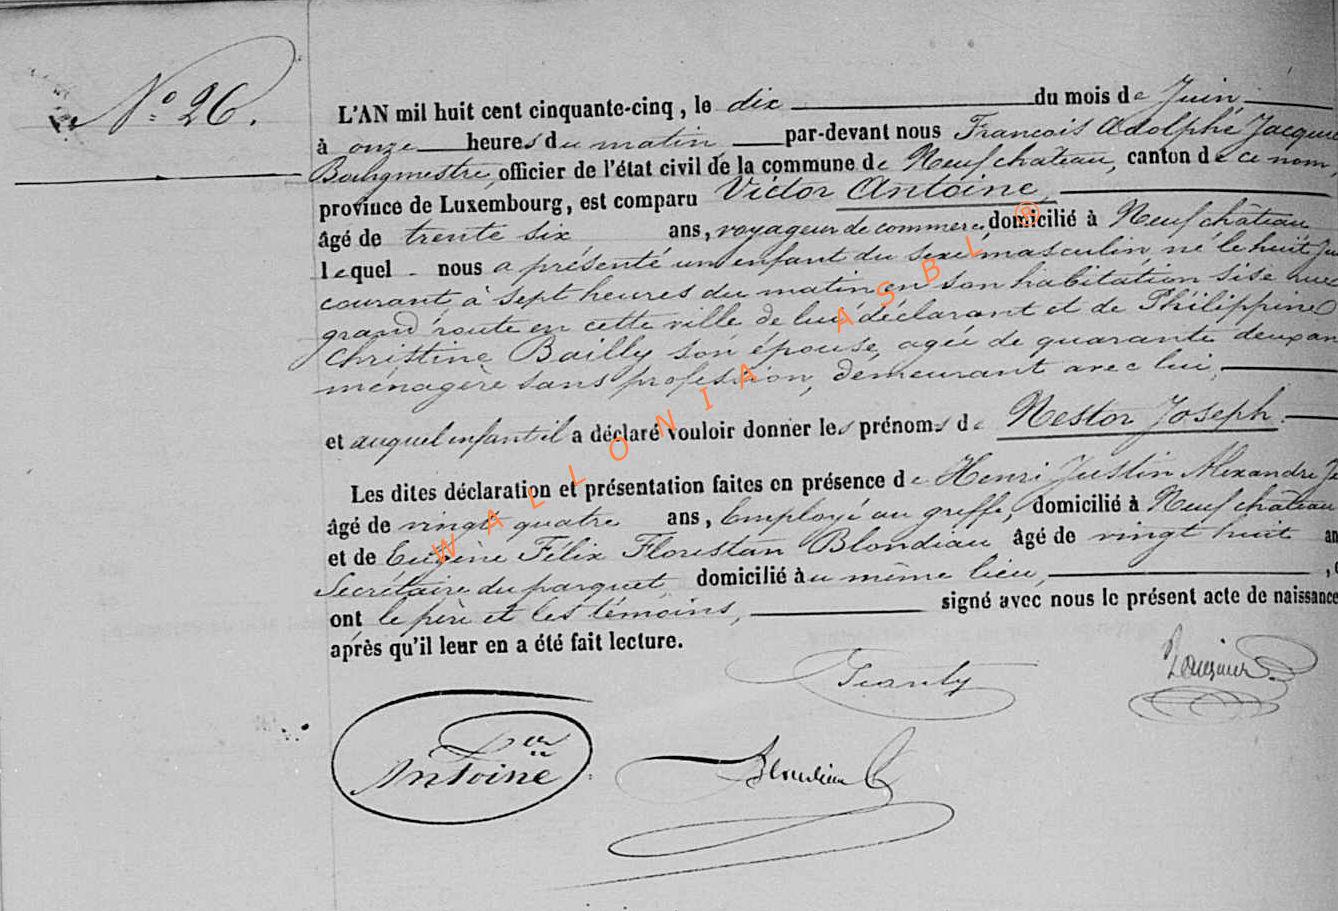 N° 26.
L'AN mil huit cent cinquante-cinq, le dix du mois de Juin,
à onze heures du matin par-devant nous François Adolphe Jacque
Bourgmestre, officier de l'état civil de la commune de Neufchâteau, canton de ce nom,
province de Luxembourg, est comparu Victor Antoine,
âgé de trente six ans, voyageur de commerce, domicilié à Neufchâteau
lequel nous a présenté un enfant du sexe masculin, né le huit
courant, à sept heures du matin en son habitation sise rue
grand'route en cette ville de lui déclarant et de Philippine
Christine Bailly son épouse, agée de quarante deux an
ménagère sans profession, demeurant avec lui,
et auquel enfant il a déclaré vouloir donner les prénoms de Nestor Joseph.
Les dites déclaration et présentation faites en présence de Henri Justin Alexandre
âgé de vingt quatre ans, Employé au greffe, domicilié à Neufchâteau
et de Eugène Félix Florestan Blondiau âgé de vingt huit an
Secrétaire du parquet, domicilié au même lieu,
ont le père et les témoins, signé avec nous le présent acte de naissance
après qu'il leur en a été fait lecture.
Antoine
Blondiau
WALLONIA ASBL ®